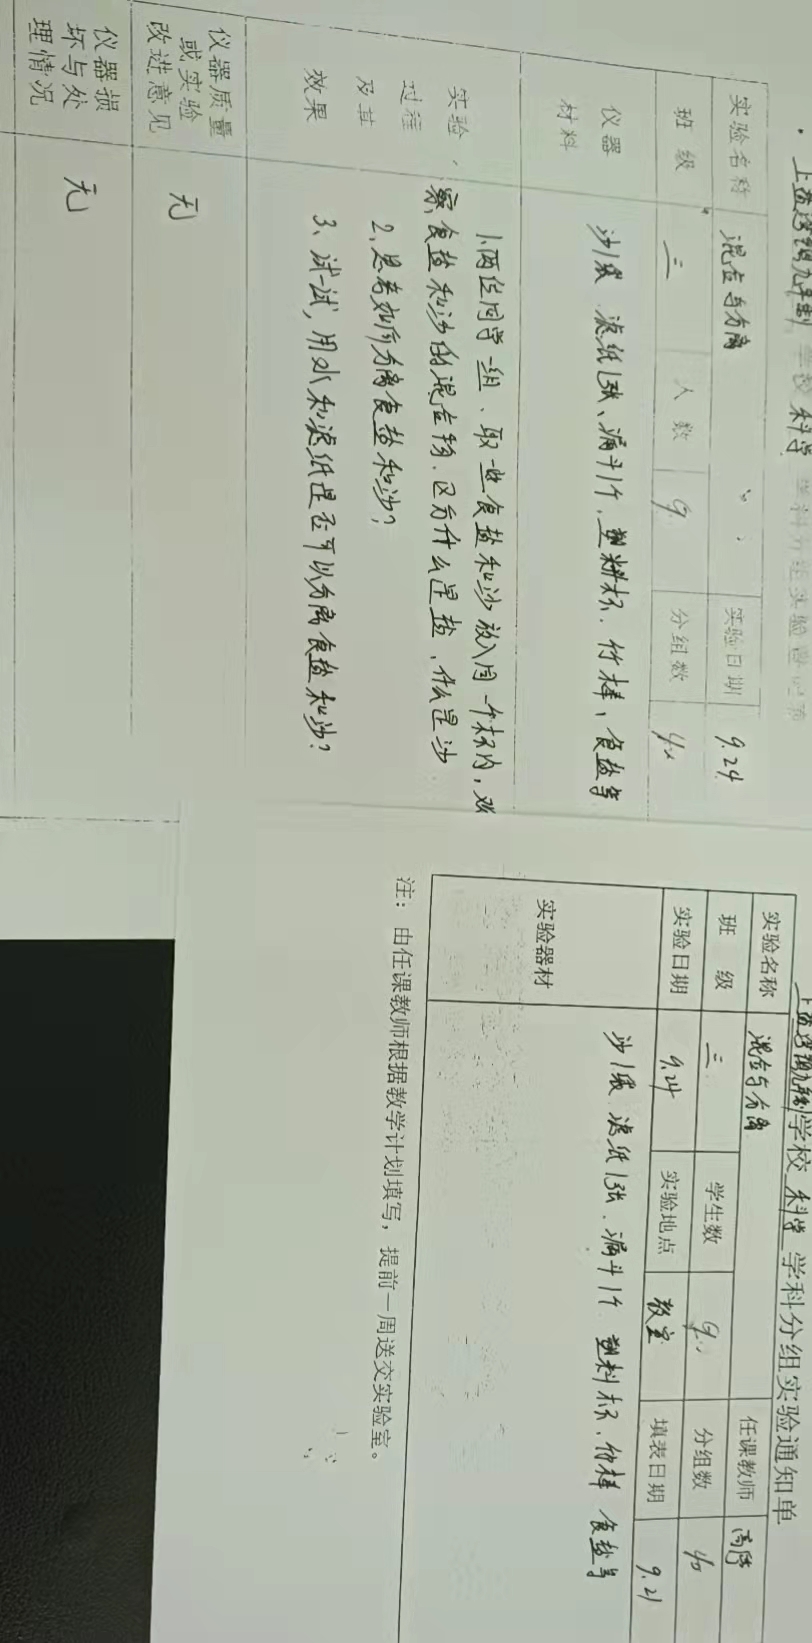 学校 科学 学科分组实验
实验名称 混合与分离 实验日期 9.24
班 级 三 人 数 9 分组数
仪器材料 沙1袋 滤纸1张、漏斗1个、塑料杯、竹棒、食盐等
实验过程及其效果
1、两位同学一组、取一些食盐和沙放入同一个杯内,观
察食盐和沙的混合物、区分什么是盐、什么是沙
2、思考如何分离食盐和沙?
3、试一试,用水和滤纸是否可以分离食盐和沙?
仪器质量或实验改进意见 无
仪器损坏与处理情况 无
学校 科学 学科分组实验通知单
实验名称 混合与分离 任课教师
班 级 三 学生数 9 分组数
实验日期 9.24 实验地点 教室 填表日期 9.21
实验器材 沙1袋 滤纸1张、漏斗1个 塑料杯、竹棒 食盐等
注:由任课教师根据教学计划填写,提前一周送交实验室。